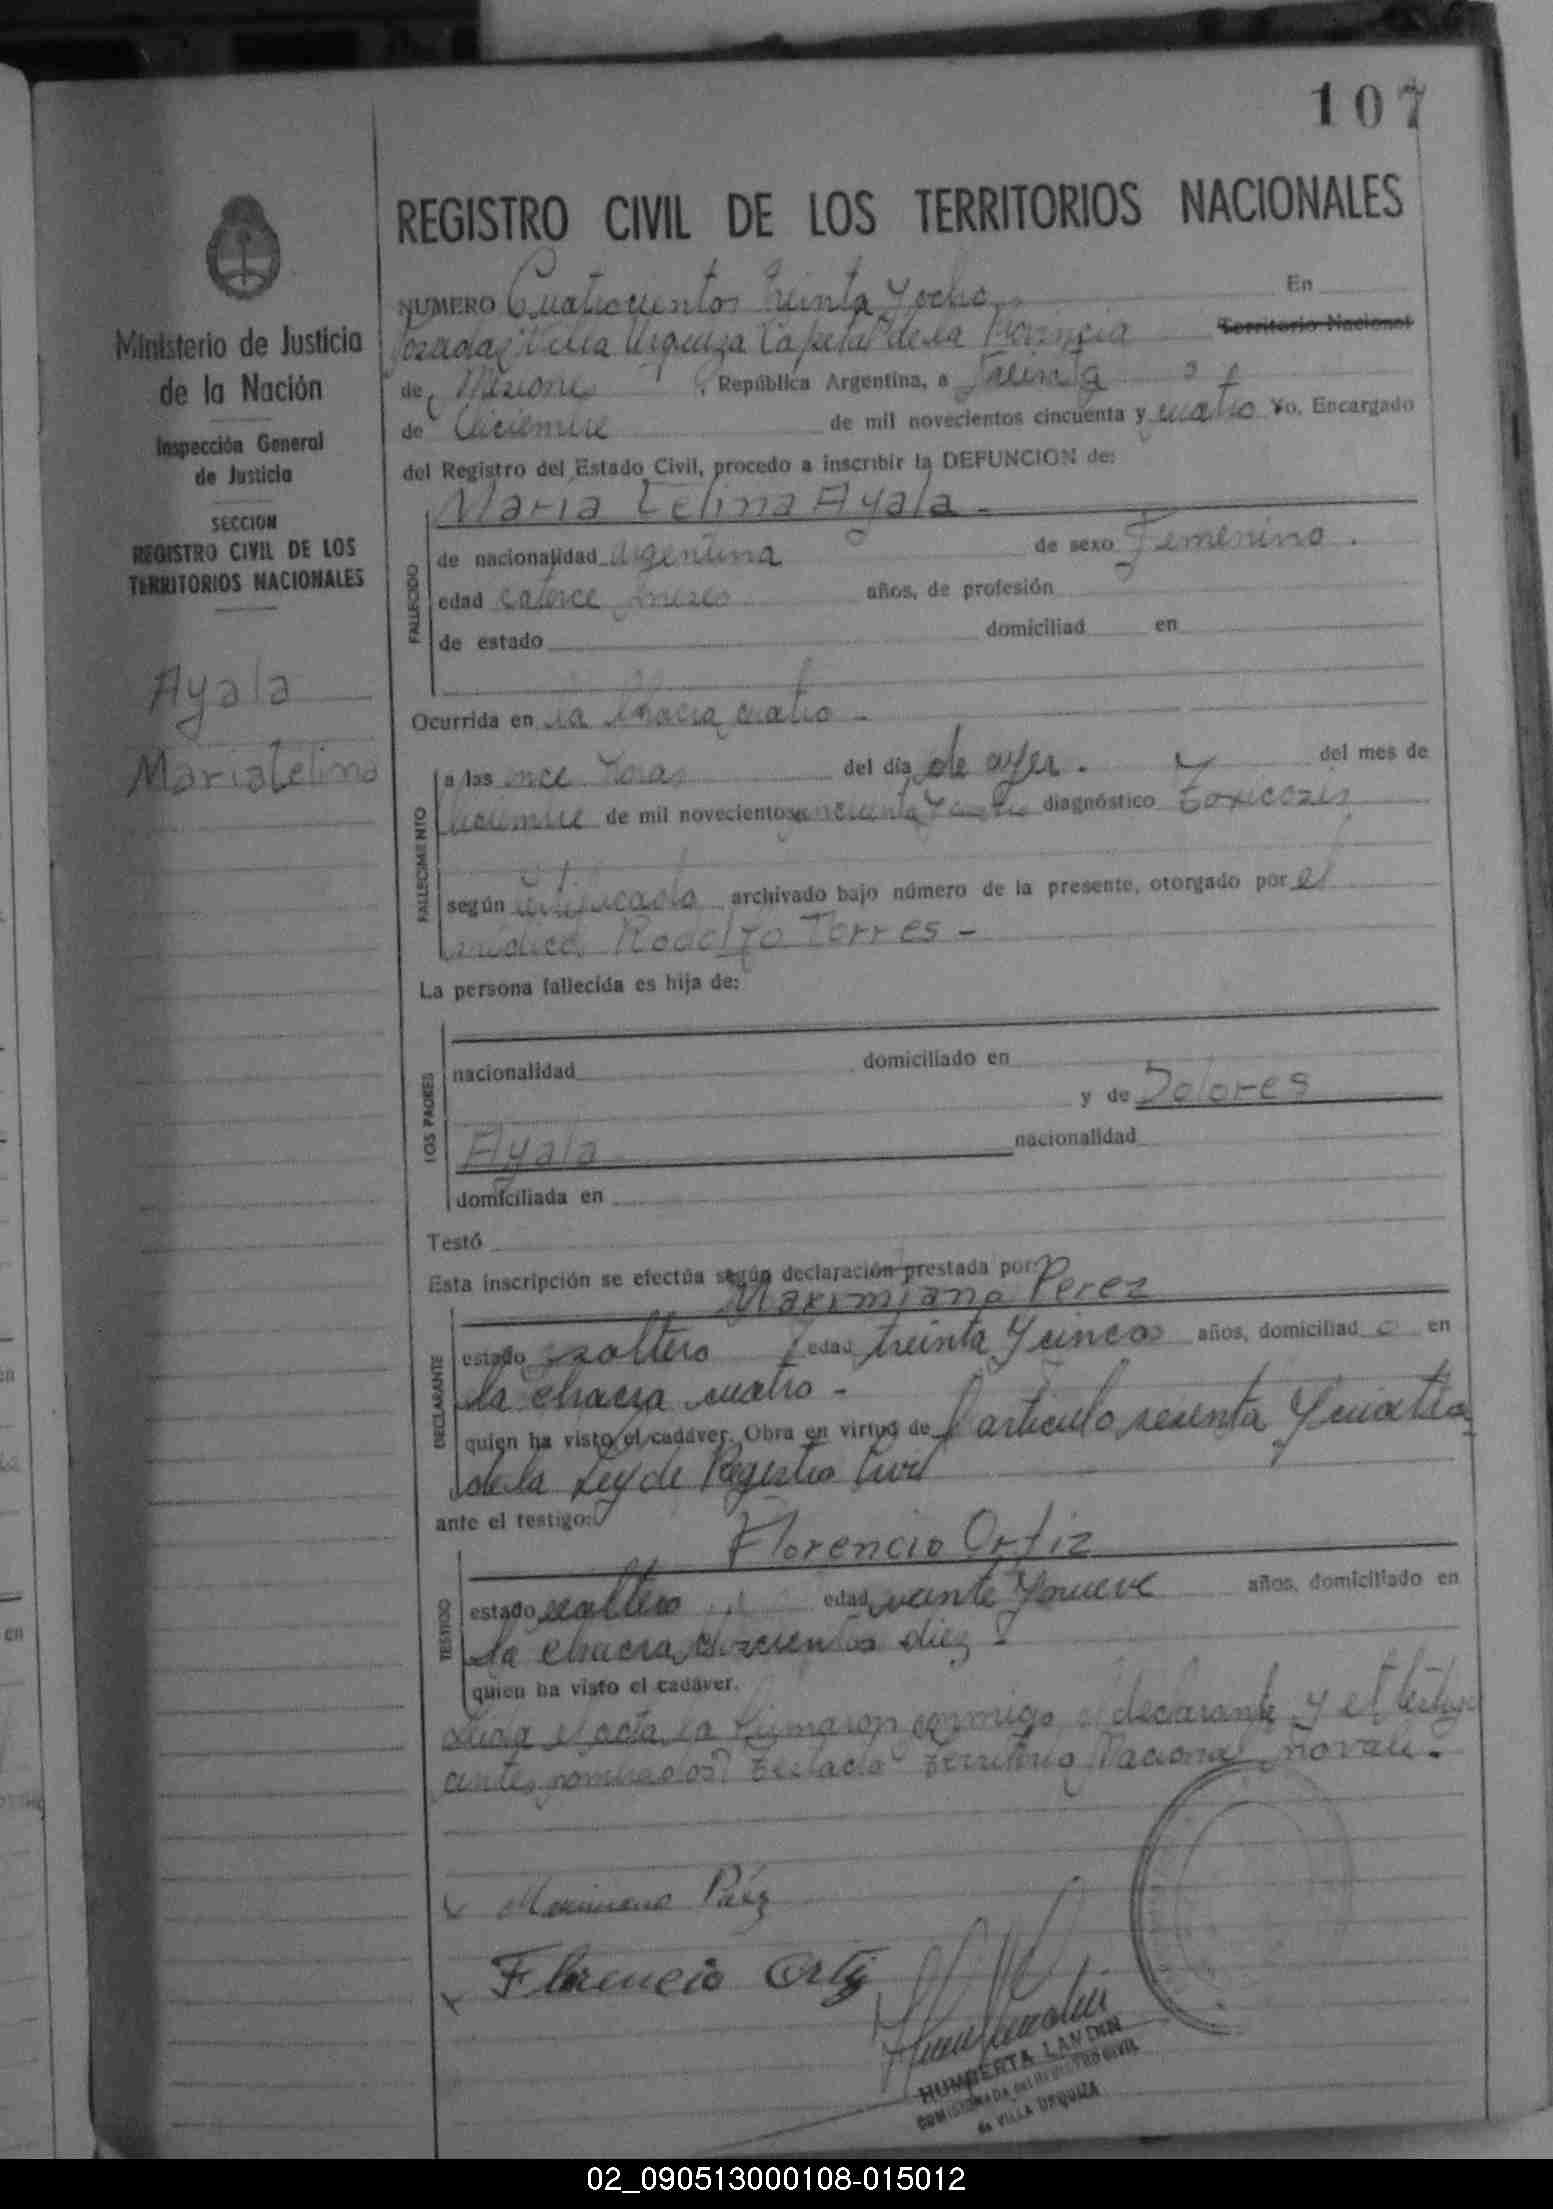 107
REGISTRO CIVIL DE LOS TERRITORIOS NACIONALES
Ministerio de Justicia
de la Nación
Inspección General
de Justicia
SECCION
REGISTRO CIVIL DE LOS
TERRITORIOS NACIONALES
Ayala
Maria Celina
NUMERO Cuatrocientos treinta y ocho En
Posadas Villa Urquiza Capital de la Provincia Territorio Nacional
de Misiones, República Argentina, a Treinta
de Diciembre de mil novecientos cincuenta y cuatro Yo, Encargado
del Registro del Estado Civil, procedo a inscribir la DEFUNCION de:
Maria Celina Ayala -
FALLECIDO
de nacionalidad argentina de sexo Femenino.
edad catorce meses años, de profesión
de estado domiciliad en
Ocurrida en la chacra cuatro -
FALLECIMENTO
a las once horas del día de ayer. del mes de
Diciembre de mil novecientos cincuenta y cuatro diagnóstico toxicozis
según certificado archivado bajo número de la presente, otorgado por el
médico Rodolfo Torres -
La persona fallecida es hija de:
LOS PADRES
nacionalidad domiciliado en
y de Dolores
Ayala nacionalidad
domiciliada en
Testó
Esta inscripción se efectúa según declaración prestada por:
Maximiano Perez
DECLARANTE
estado soltero edad treinta y cinco años, domiciliad o en
la chacra cuatro -
quien ha visto el cadáver. Obra en virtud de l articulo sesenta y cuatro
de la Ley de Registro Civil
ante el testigo:
Florencio Ortiz
TESTIGO
estado soltero edad veinte y nueve años, domiciliado en
la chacra doscientos diez -
quien ha visto el cadáver.
Leida el acta la firmaron conmigo el declarante y el testigo
antes nombrados Testado Territorio Nacional no vale.
Maximiano Páez
Florencio Ortiz
HUMBERTA LANDIN
COMISIONADA del REGISTRO CIVIL
de VILLA URQUIZA
02_090513000108-015012